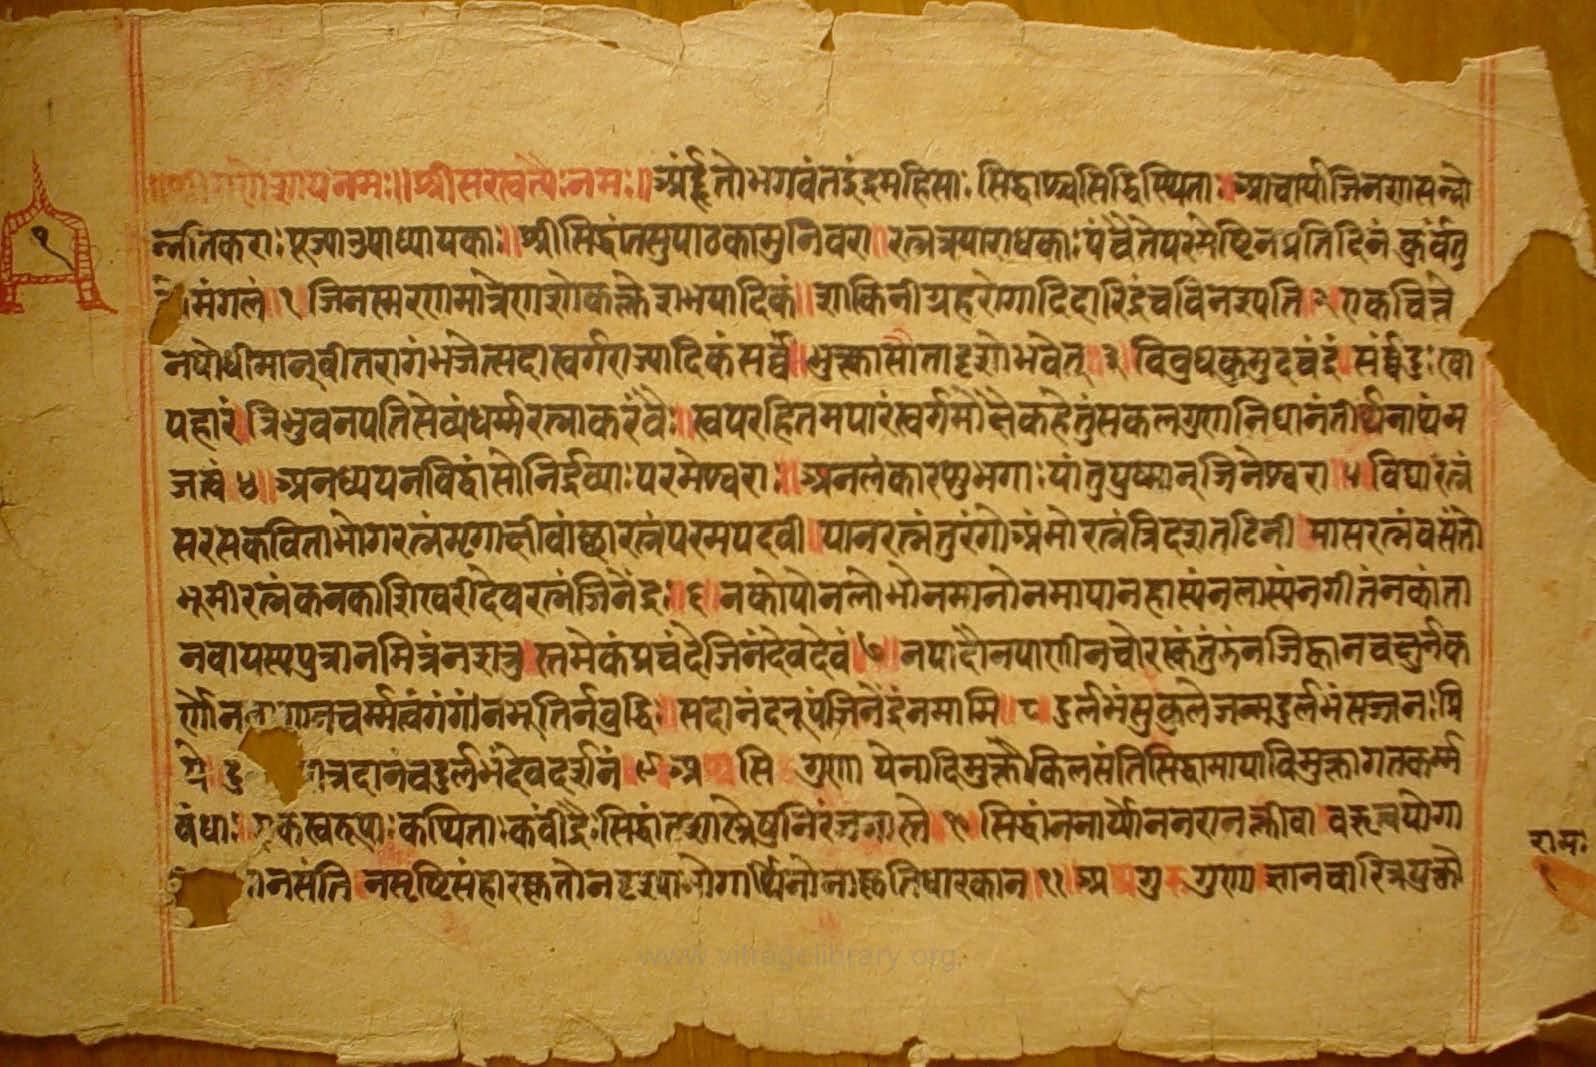 १
श्रीगणेशायनमः॥श्रीसरस्वत्यैःनमः॥अर्हंतोभगवंतइंद्रमहिताः सिद्धाश्चसिद्धिस्थिता॥आचार्याजिनशासनो
न्नतिकराः पूज्याउपाध्यायकाः॥श्रीसिद्धांतसुपाठकामुनिवरा॥रत्नत्रयाराधकाः पंचैतेपरमेष्टिनप्रतिदिनं कुर्वंतु
मंगलं॥१ जिनस्मरणमात्रेणशोकक्लेशभयादिकं॥शाकिनीग्रहरोगादिदारिद्रंचविनश्यति॥२एकचित्ते
नयोधीमान्वीतरागंभजेत्सदास्वर्गराज्यादिकंसर्वं॥भुक्त्वासौतादृशोभवेत्॥३॥विबुधकुमुदचंद्रं॥सर्वदुःखा
पहारं॥त्रिभुवनपतिसेव्यंधर्म्मरत्नाकरंवैः॥स्वपरहितमपारंस्वर्गमोक्षैकहेतुंसकलगुणनिधानंतीर्थनाथंभ
जत्वं॥४॥अनध्ययनविद्वांसोनिर्द्रव्याःपरमेश्वराः॥अनलंकारशुभगाः पांतुयुष्मान्जिनेश्वरा॥५॥विद्यारत्नं
सरसकविताभोगरत्नंमृगाक्षीवांछारत्नंपरमपदवी॥यानरत्नंतुरंगोअंभोरत्नंत्रिदशतटिनी॥मासरत्नंवसंतो
भूमीरत्नंकनकशिखरीदेवरत्नंजिनेंद्रः॥६॥नकोपोनलोभोनमानोनमायानहास्यंनलास्यंनगीतंनकांता
नवायस्यपुत्रानमित्रंनशत्रु॥स्तमेकंप्रवंदेजिनंदेवदेवं॥७॥नपादौनपाणीनचोरस्कंतुंडंनजिह्वानवक्त्रंनक
र्णौन चर्म्मत्वंगंगंनमूतिर्नबुद्धिः॥सदानंदरूपंजिनेंद्रंनमामि॥८॥दुर्लभंसुकुलेजन्मदुर्लभंसज्जनःप्रि
ये॥दु त्रदानंचदुर्लभंदेवदर्शनं॥९॥अथसिद्धगुणा येनादिमुक्तौकिलसंतिसिद्धामायाविमुक्तागतकर्म्म
बंधाः॥एकस्वरूपाः कथिताः कवींद्रैः सिद्धांतशास्त्रेपुनिरंजनास्ते॥१०॥सिद्धांननार्योननरानक्लीवा वक्तृत्वयोगा
नसंति॥नसृष्टिसंहारकृतोनदृश्याभोगार्थिनोनाकृतिधारकान॥११॥अथगुरुगुण॥ज्ञानचारित्रयुक्तो
रामः
www.vitragelibrary.org